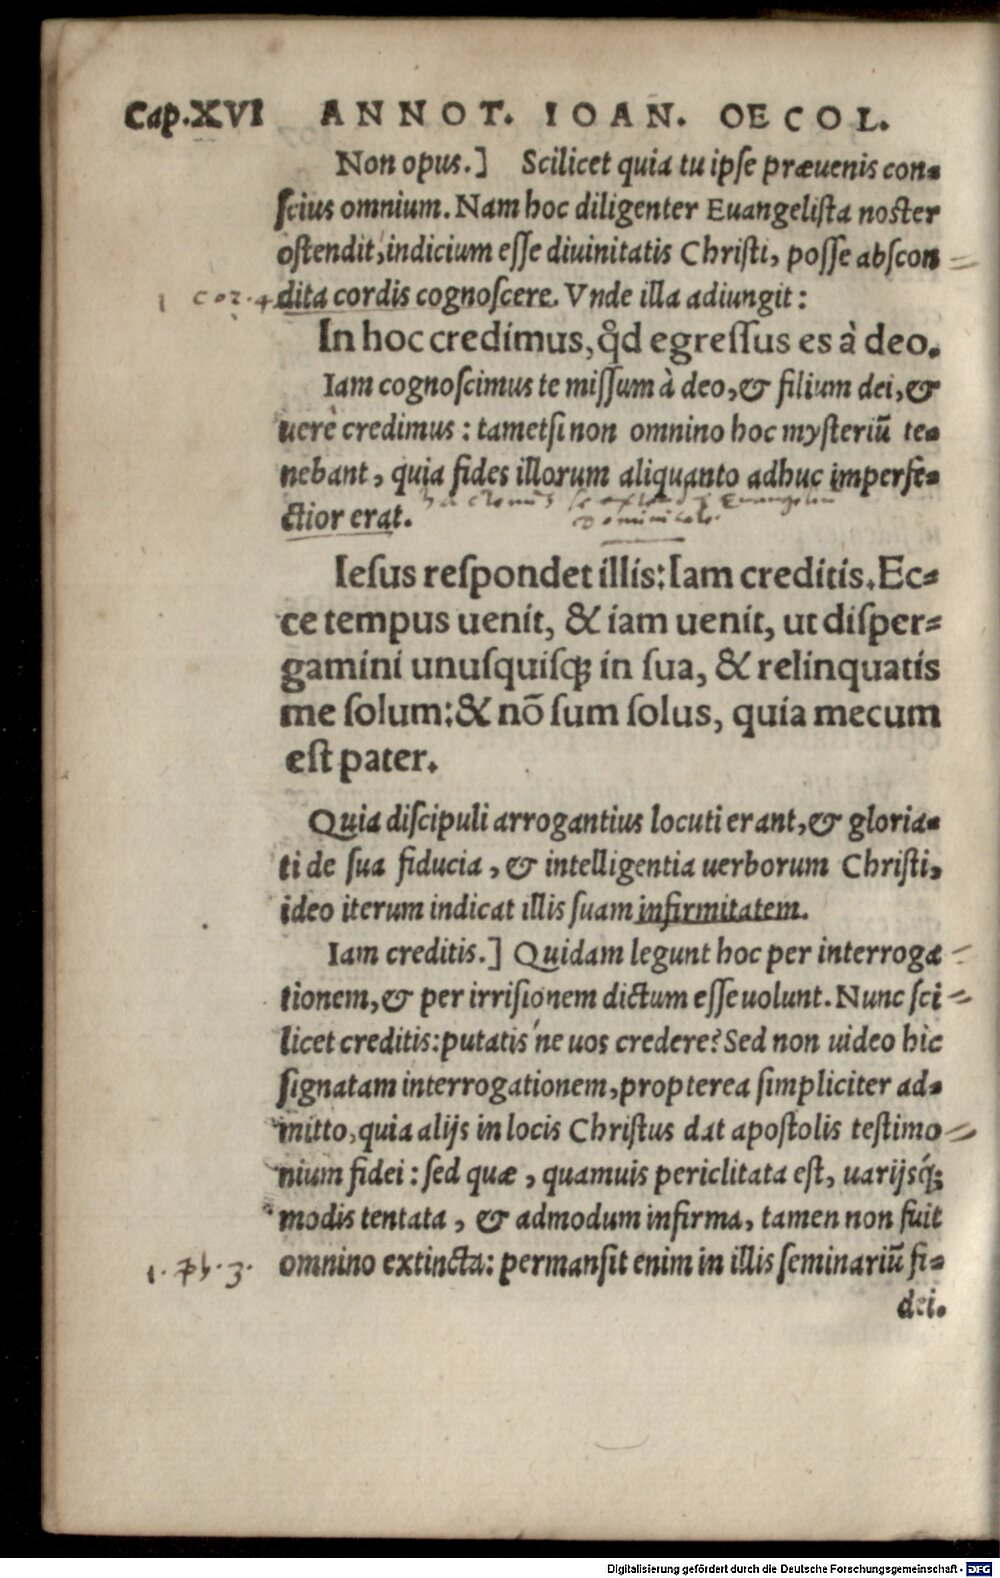 Cap.XVI ANNOT. IOAN. OECOL.
Non opus.] Scilicet quia tu ipſe præuenis con-
ſcius omnium. Nam hoc diligenter Euangeliſta noſter
oſtendit, indicium eſſe diuinitatis Chriſti, poſſe abſcon
1 cor. 4 dita cordis cognoſcere. Vnde illa adiungit:
In hoc credimus, qđ egreſſus es à deo.
Iam cognoſcimus te miſſum à deo, & filium dei, &
uerè credimus: tametſi non omnino hoc myſteriū te-
nebant, quia fides illorum aliquanto adhuc imperfe-
ctior erat.
Ieſus reſpondet illis: Iam creditis. Ec-
ce tempus uenit, & iam uenit, ut diſper-
gamini unuſquiſqꝫ in ſua, & relinquatis
me ſolum: & nō ſum ſolus, quia mecum
eſt pater.
Quia diſcipuli arrogantius locuti erant, & gloria-
ti de ſua fiducia, & intelligentia uerborum Chriſti,
ideo iterum indicat illis ſuam infirmitatem.
Iam creditis.] Quidam legunt hoc per interroga
tionem, & per irriſionem dictum eſſe uolunt. Nunc ſci
licet creditis: putatis'ne uos credere? Sed non uideo hic
ſignatam interrogationem, propterea ſimpliciter ad-
mitto, quia alijs in locis Chriſtus dat apoſtolis teſtimo
nium fidei: ſed quæ, quamuis periclitata eſt, uarijsq́ꝫ
modis tentata, & admodum infirma, tamen non fuit
omnino extincta: permanſit enim in illis ſeminariū fi-
dei.
Digitalisierung gefördert durch die Deutsche Forschungsgemeinschaft - DFG